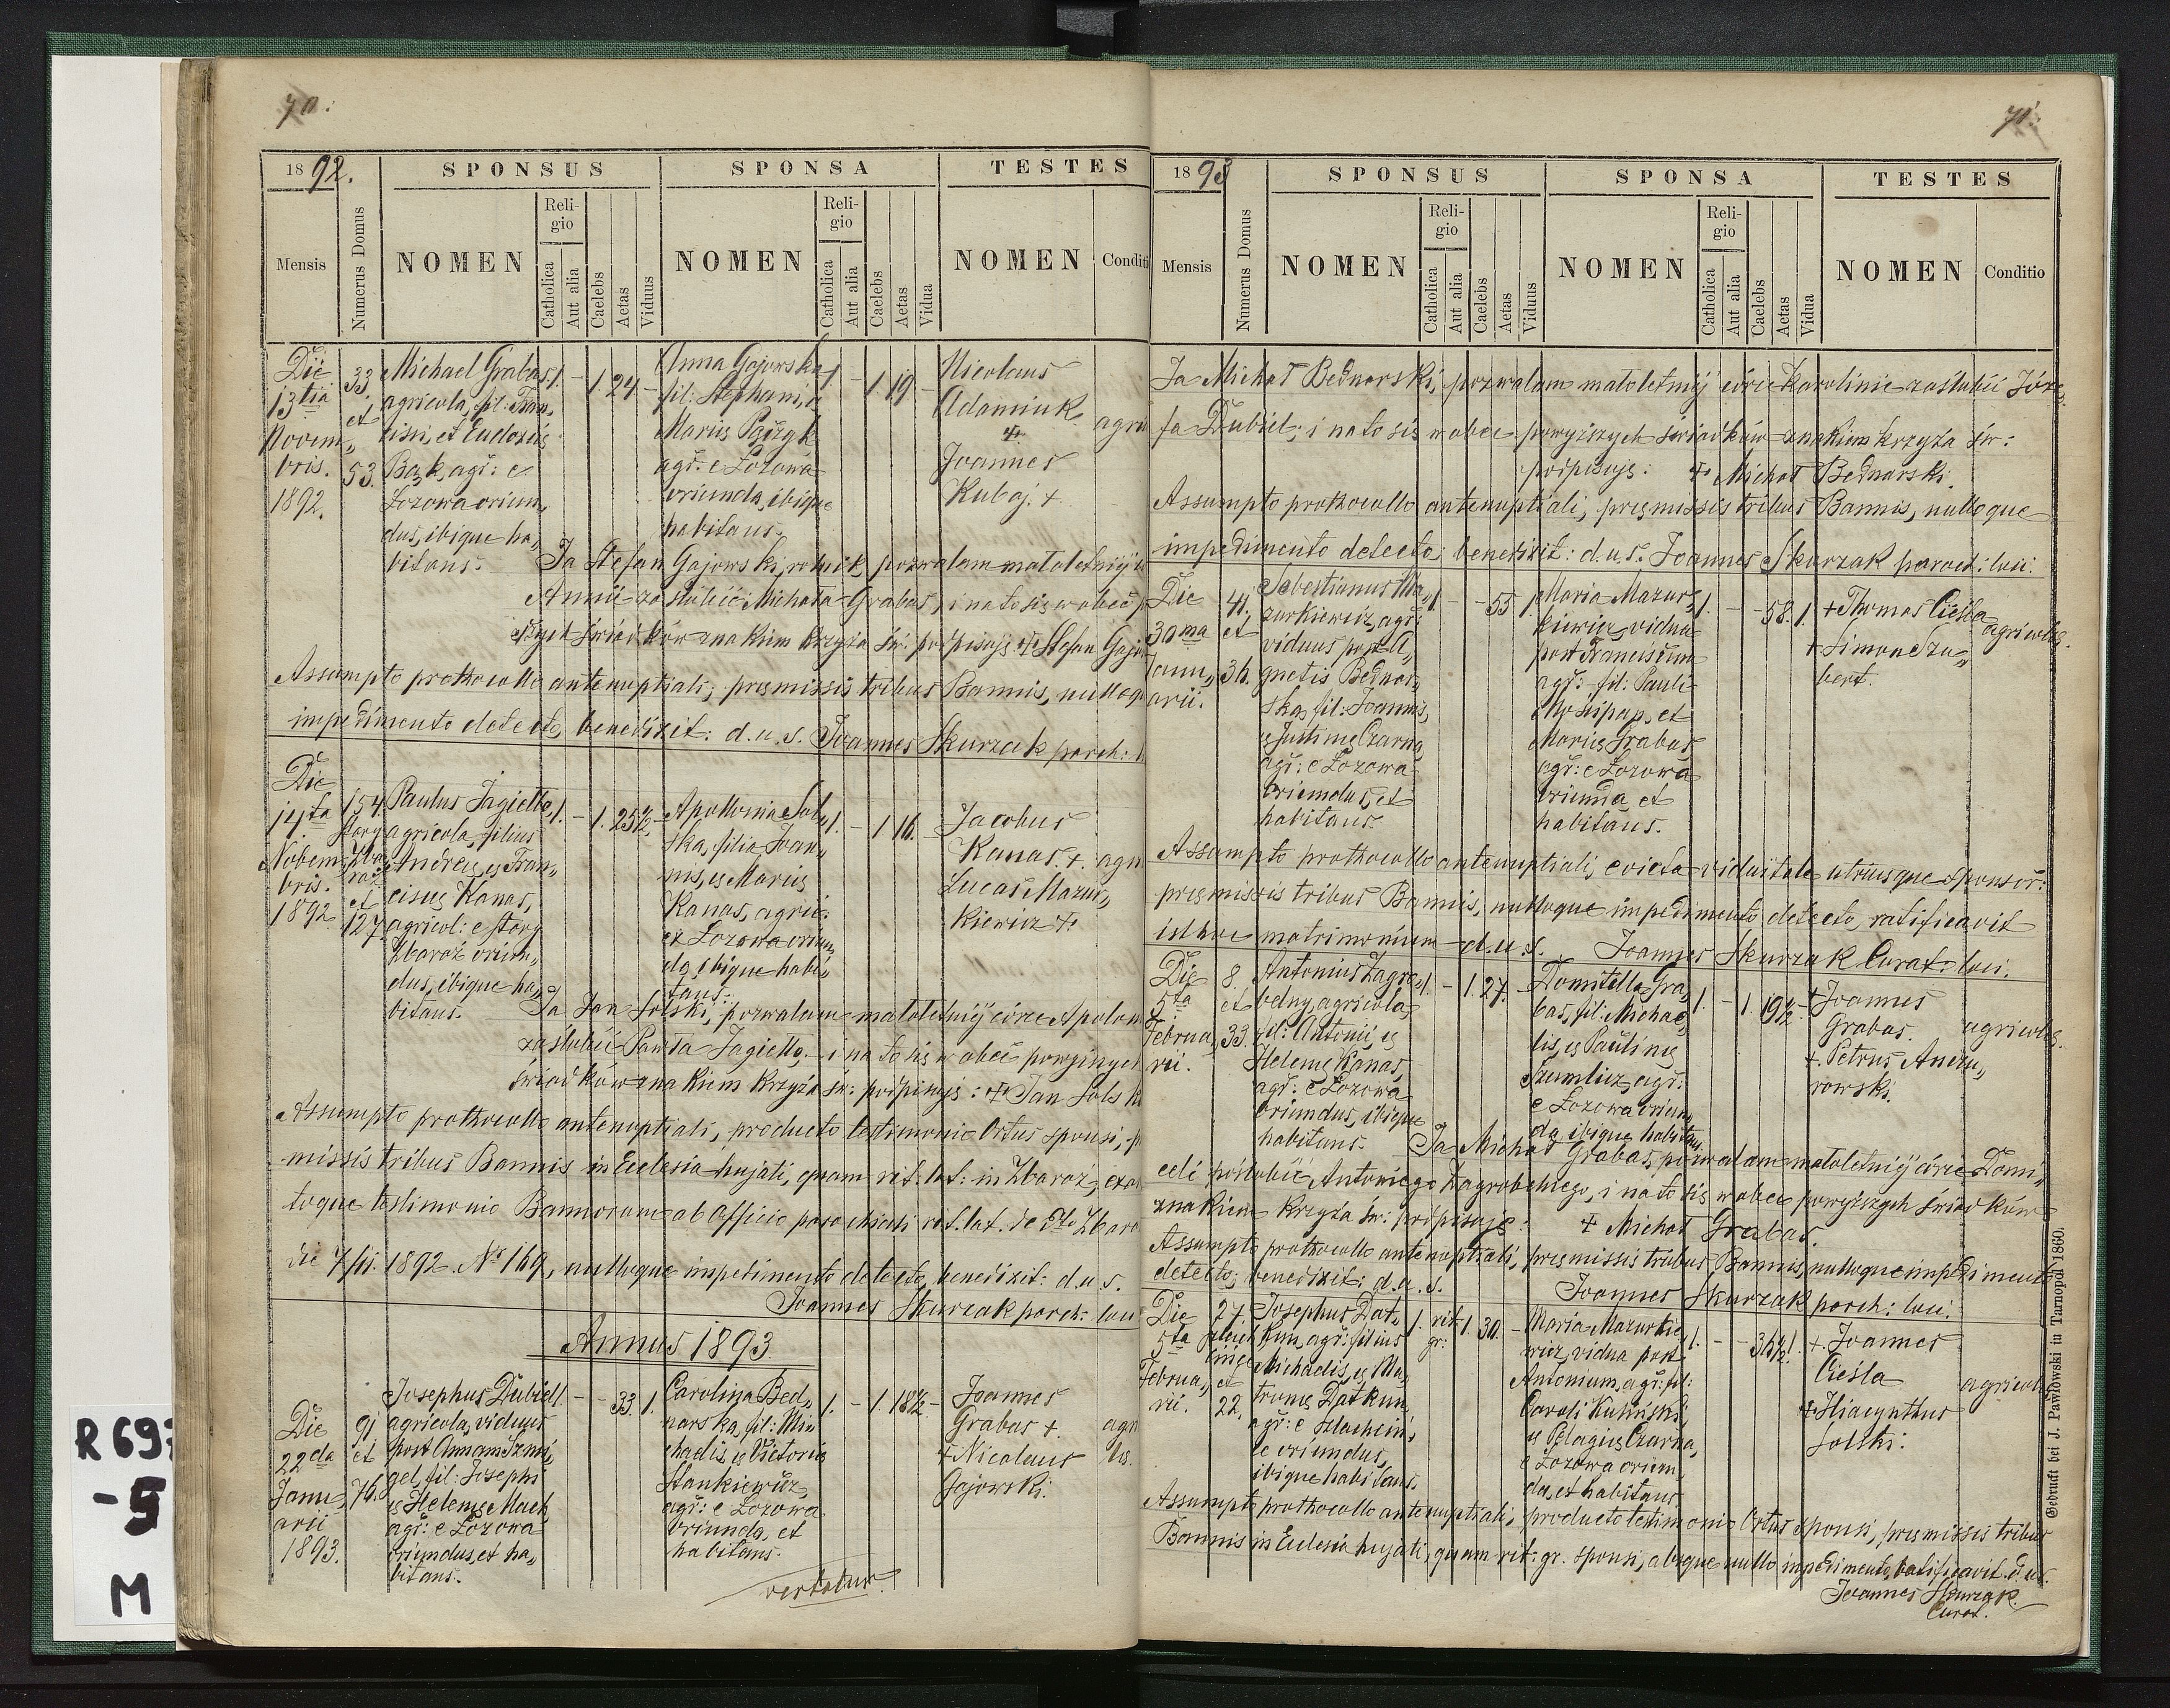 70.
1892.
SPONSUS
SPONSA
TESTES
Mensis
Numerus Domus
NOMEN
Religio
Catholica
Aut alia
Caelebs
Aetas
Viduus
NOMEN
Religio
Catholica
Aut alia
Caelebs
Aetas
Vidua
NOMEN
Conditi
Die
13tia
Novem„
bris.
1892.
33
et
53.
Michael Grabas
agricola, fil: Fran„
cisci, et Eudoxiæ
Bąk, agr: e
Łozowa oriun„
dus, ibique ha„
bitans.
1. - 1. 24 -
Anna Gajowska
fil: Stephani, et
Mariæ
agr: e Łozowa
oriunda, ibique
habitans.
1 - 1 19 -
Nicolaus
Adamiuk
+
Joannes
Kubaj. +
agri
Ja Stefan Gajowski, rolnik, pozwalam małoletniij
Annie zaślubić Michała Grabas, i na to się wobec
szych świadków znakiem krzyża św: podpisuję + Stefan Gajo
Assumpto prothocollo antenuptiali, præmissis tribus Bannis, nulloq
impedimento detecto, benedixit: d.u.s. Joannes Skurzak parch:
Die
14ta
Novem„
bris.
1892
154
Stary
Zba„
raż
et
127
Paulus Jagiełło
agricola, filius
Andreæ, et Fran„
ciscæ Kanas,
agricol: e Stary
Zbaraż oriun„
dus, ibique ha„
bitans.
1. - 1. 25½ -
Apollonia Sol„
ska, filia Joan„
nis, et Mariæ
Kanas, agric:
ex Łozowa oriun„
da, ibique habi„
tans.
1. - 1 16. -
Jacobus
Kanas. +
Lucas Mazur„
kiewicz +
agri
Ja Jan Solski, pozwalam małoletniij córce Apolon
zaślubić Pawła Jagiełło, i na to się wobec powyższych
świadków znakiem krzyża św: podpisuję: + Jan Solsk
Assumpto prothocollo antenuptiali, producto testimonio Ortus sponsi, p
missis tribus Bannis in Ecclesia hujati, quam rit: lat: in Zbaraż,
toque testimonio Bannorum ab Officio parochiali rit. lat. de dto Zbara
die 7/11. 1892. No 169, nulloque impedimento detecto, benedixit: d.u.s.
Joannes Skurzak parch: loci
Annus 1893
Die
22da
Janu„
arii
1893.
91
et
76.
Josephus Dubiel
agricola, viduus
post Annam Szmi„
gel, fil: Josephi
et Helenæ Mach
agr: e Łozowa
oriundus, et ha„
bitans.
1. - - 33. 1.
Carolina Bed„
narska, fil: Mi„
chaelis et Victoriæ
Stankiewicz,
agr: e Łozowa
oriunda, et
habitans.
1. - 1 18½ -
Joannes
Grabas +
+ Nicolaus
Gajowski.
agri
læ.
vertatur
71.
1893
SPONSUS
SPONSA
TESTES
Mensis
Numerus Domus
NOMEN
Religio
Catholica
Aut alia
Caelebs
Aetas
Viduus
NOMEN
Religio
Catholica
Aut alia
Caelebs
Aetas
Vidua
NOMEN
Conditio
Ja Michał Bednarski, pozwalam małoletniij córce Karolinie zaślubić Józe„
fa Dubiel, i na to się wobec powyższych świadków znakiem krzyża św:
podpisuję: + Michał Bednarski.
Assumpto prothocollo antenuptiali, præmissis tribus Bannis, nulloque
impedimento detecto, benedixit: d.u.s. Joannes Skurzak paroch: loci.
Die
30ma
Janu„
arii.
41.
et
36.
Sebestianus Ma„
zurkiewicz, agr:
viduus post A„
gnetis Bednar„
ska, fil: Joannis,
et Justinæ Czarna
agr: e Łozowa
oriundus, et
habitans.
1. - - 55
Maria Mazur„
kiewicz, vidua
post Franciscum
agr: fil: Pauli
et
Mariæ Grabas
agr: e Łozowa
oriunda, et
habitans.
1. - - 58. 1.
+ Thomas Cieśla
+ Simon Szu„
bert.
agricolæ.
Assumpto prothocollo antenuptiali, evicta viduitate utriusque sponsor:
præmissis tribus Bannis, nulloque impedimento detecto, ratificavit
isthoc matrimonium d.u.s. Joannes Skurzak Curat: loci.
Die
5ta
Februa„
rii.
8.
et
33.
Antonius Zagro„
belny, agricola
fil: Antonii, et
Helenæ Kanas,
agr: e Łozowa
oriundus, ibique
habitans.
1. - 1. 27. -
Domitella Gra„
bas, fil: Michae„
lis, et Paulinæ
Szumlicz, agr:
e Łozowa oriun„
da, ibique habitans.
1. - 1. 19½ -
+ Joannes
Grabas.
+ Petrus Andru„
rowski.
agricolæ.
Ja Michał Grabas, pozwalam małoletniij córce Domi„
celi poślubić Antoniego Zagrobelnego, i na to się wobec powyższych świadków
znakiem krzyża św: podpisuję: + Michał Grabas.
Assumpto prothocollo antenuptiali, præmissis tribus Bannis, nulloque impedimento
detecto, benedixit: d.u.s. Joannes Skurzak parch: loci.
Die
5ta
Februa„
rii.
27.
et
22.
Josephus Dat„
kun, agr: filius
Michaelis, et Ma„
tronæ Datkun,
agr: e Szlachcin„
ce oriundus,
ibique habitans.
1. rit. gr. 1. 30. -
Maria Mazurkie„
wicz, vidua post
Antonium, agr: fil:
Caroli Kuliński,
et Pelagiæ Czarna,
e Łozowa oriun„
da, et habitans.
1. - - 36½ 1.
+ Joannes
Cieśla
+ Hiacynthus
Solski.
agricolæ
Assumpto prothocollo antenuptiali, producto testimonio Ortus sponsi, præmissis tribus
Bannis in Ecclesia hujati, quam rit: gr. sponsi, absque nullo impedimento, ratificavit. d.u.s.
Joannes Skurzak.
Curat.
Gedruckt bei J. Pawłowski in Tarnopol 1860.
R 697
-5
M